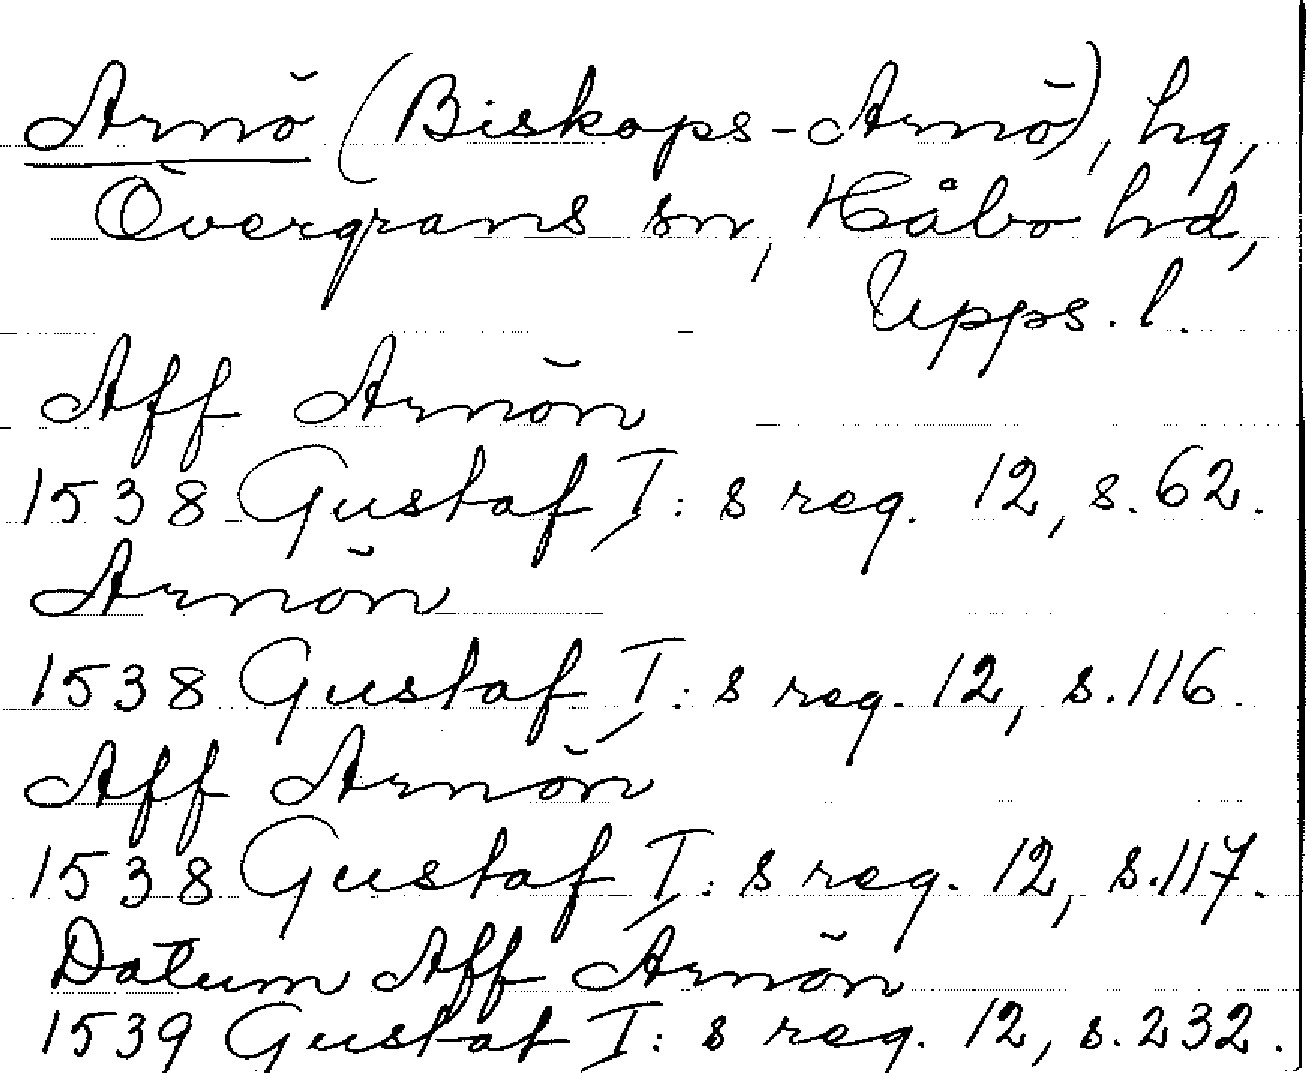 Arnö (Biskops-Arnö), hg,
Övergrans sn, Håbo hd,
Upps. l.
Aff Arnön
1538 Gustaf I:s reg. 12, s. 62.
Arnön
1538 Gustaf I:s reg. 12, s. 116.
Aff Arnön
1538 Gustaf I:s reg. 12, s. 117.
Datum Aff Arnön
1539 Gustaf I:s reg. 12, s. 232.